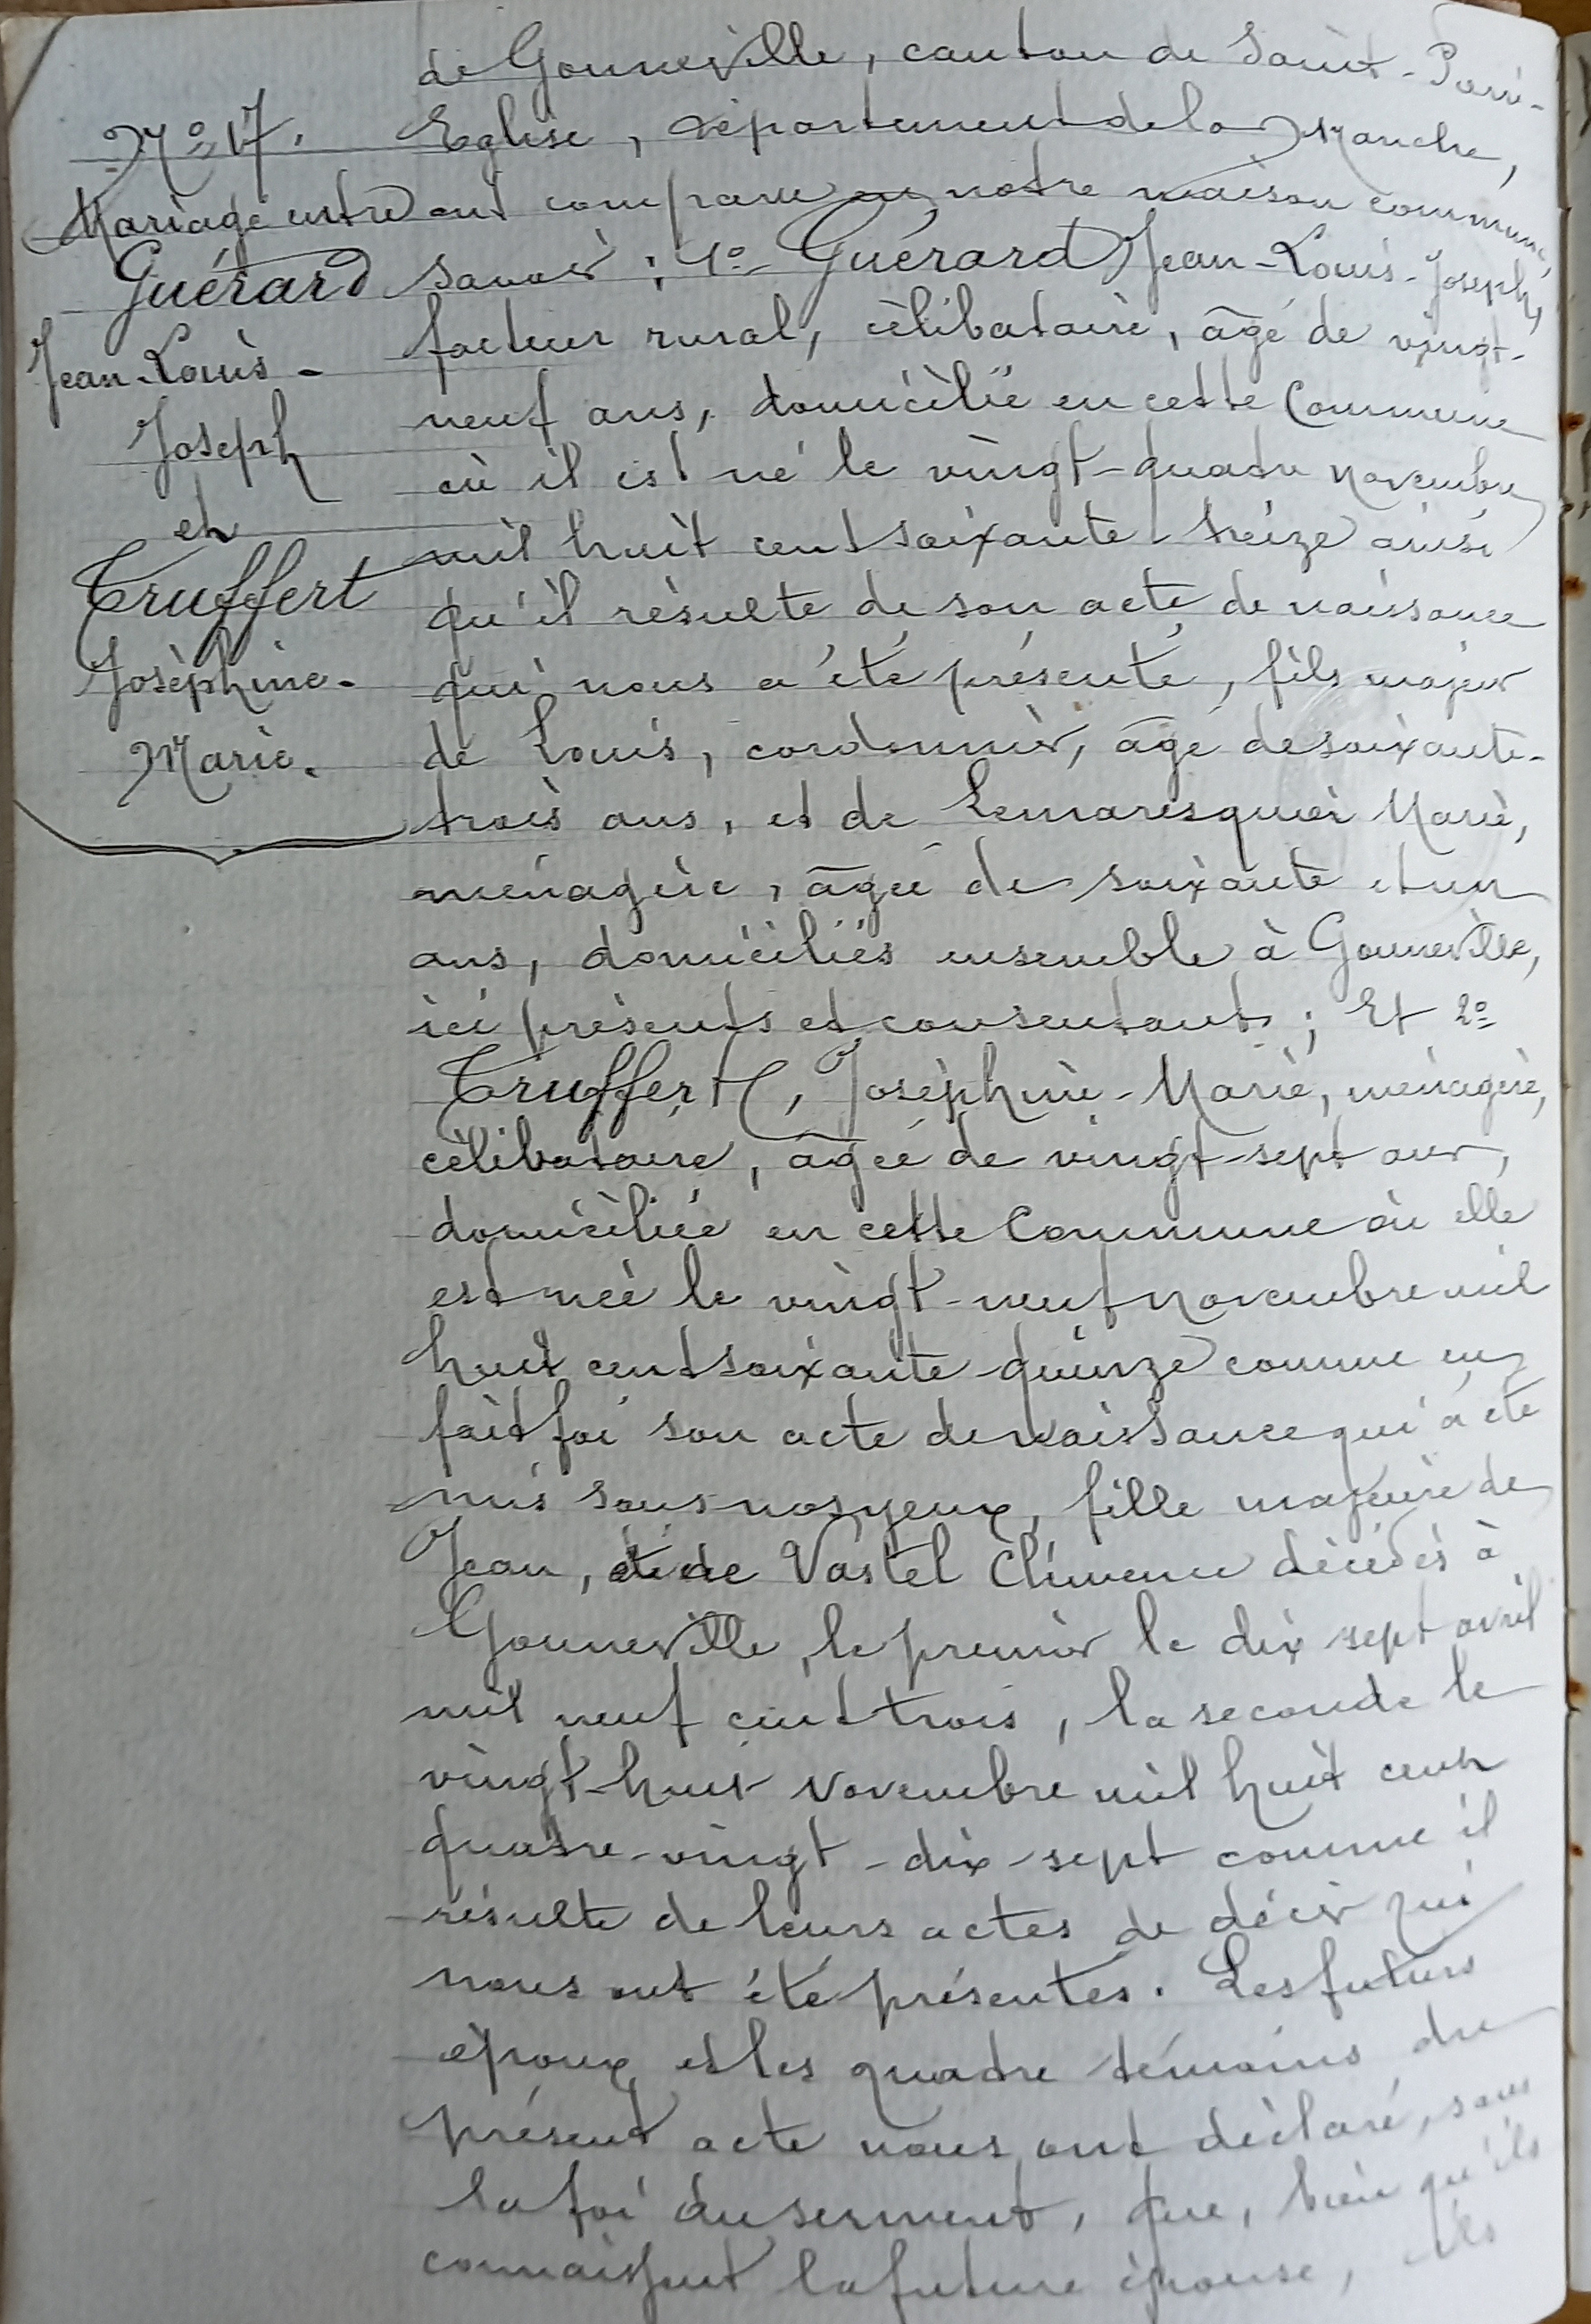 de Gonneville, canton de Saint-Pierre-
Eglise, département de la Manche,
ont comparu en notre maison commune,
savoir ; 1º Guérard Jean-Louis-Joseph,
facteur rural, célibataire, âgé de vingt-
neuf ans, domicilié en cette Commune
où il est né le vingt-quatre novembre
mil huit cent soixante treize ainsi
qu'il résulte de son acte de naissance
qui nous a été présenté, fils majeur
de Louis, cordonnier, âgé de soixante-
trois ans, et de Lemaresquier Marie,
ménagère, âgée de soixante et un
ans, domiciliés ensemble à Gonneville,
ici présents et consentants ; Et 2º
Truffert, Joséphine-Marie, ménagère,
célibataire, âgée de vingt-sept ans,
domiciliée en cette Commune où elle
est née le vingt-neuf novembre mil
huit cent soixante-quinze comme en
fait foi son acte de naissance qui a été
mis sous nos yeux, fille majeure de
Jean, et de Vastel Clémence décédés à
Gonneville, le premier le dix sept avril
mil neuf cent trois, la seconde le
vingt-huit novembre mil huit cent
quatre-vingt-dix-sept comme il
résulte de leurs actes de décès qui
nous ont été présentés. Les futurs
époux et les quatre témoins du
présent acte nous ont déclaré, sous
la foi du serment, que, bien qu'ils
connaissent la future épouse, ils
Nº 17.
Mariage entre
Guérard
Jean-Louis-
Joseph
et
Truffert
Joséphine-
Marie.